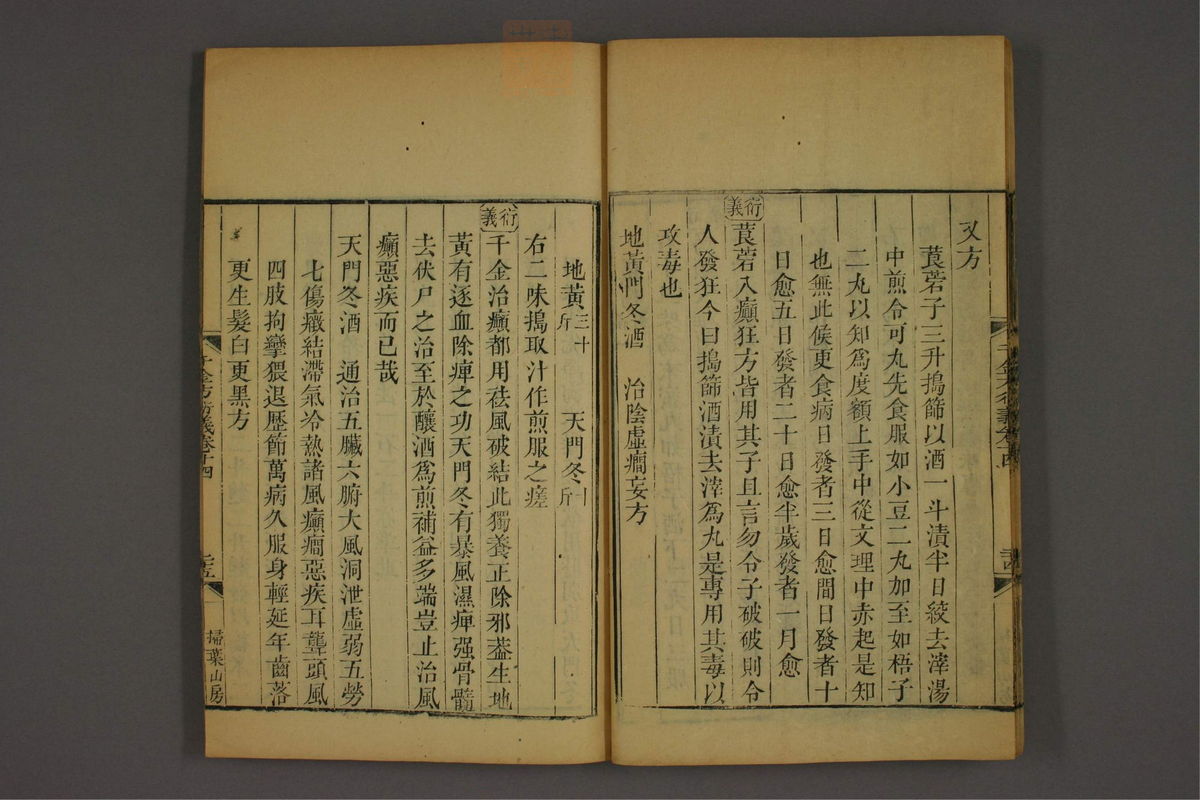 又方
莨菪子三升搗篩以酒一斗漬半日絞去滓湯
中煎令可丸先食服如小豆二丸加至如梧子
二丸以知爲度額上手中從文理中赤起是知
也無此候更食病日發者三日愈間日發者十
日愈五日發者二十日愈半歲發者一月愈
衍義
莨菪入癲狂方皆用其子且言勿令子破破則令
人發狂今曰搗篩酒漬去滓爲丸是專用其毒以
攻毒也
地黃門冬酒 治陰虛癇妄方
地黃三十斤 天門冬十斤
右二味搗取汁作煎服之瘥
衍義
千金治癲都用祛風破結此獨養正除邪葢生地
黃有逐血除痺之功天門冬有暴風濕痺强骨髓
去伏尸之治至於釀酒爲煎補益多端豈止治風
癲惡疾而已哉
天門冬酒 通治五臟六腑大風洞泄虛弱五勞
七傷癥結滯氣冷熱諸風癲癇惡疾耳聾頭風
四肢拘攣猥退歷節萬病久服身輕延年齒落
更生髮白更黑方
千金方衍義卷十四
二五
掃葉山房